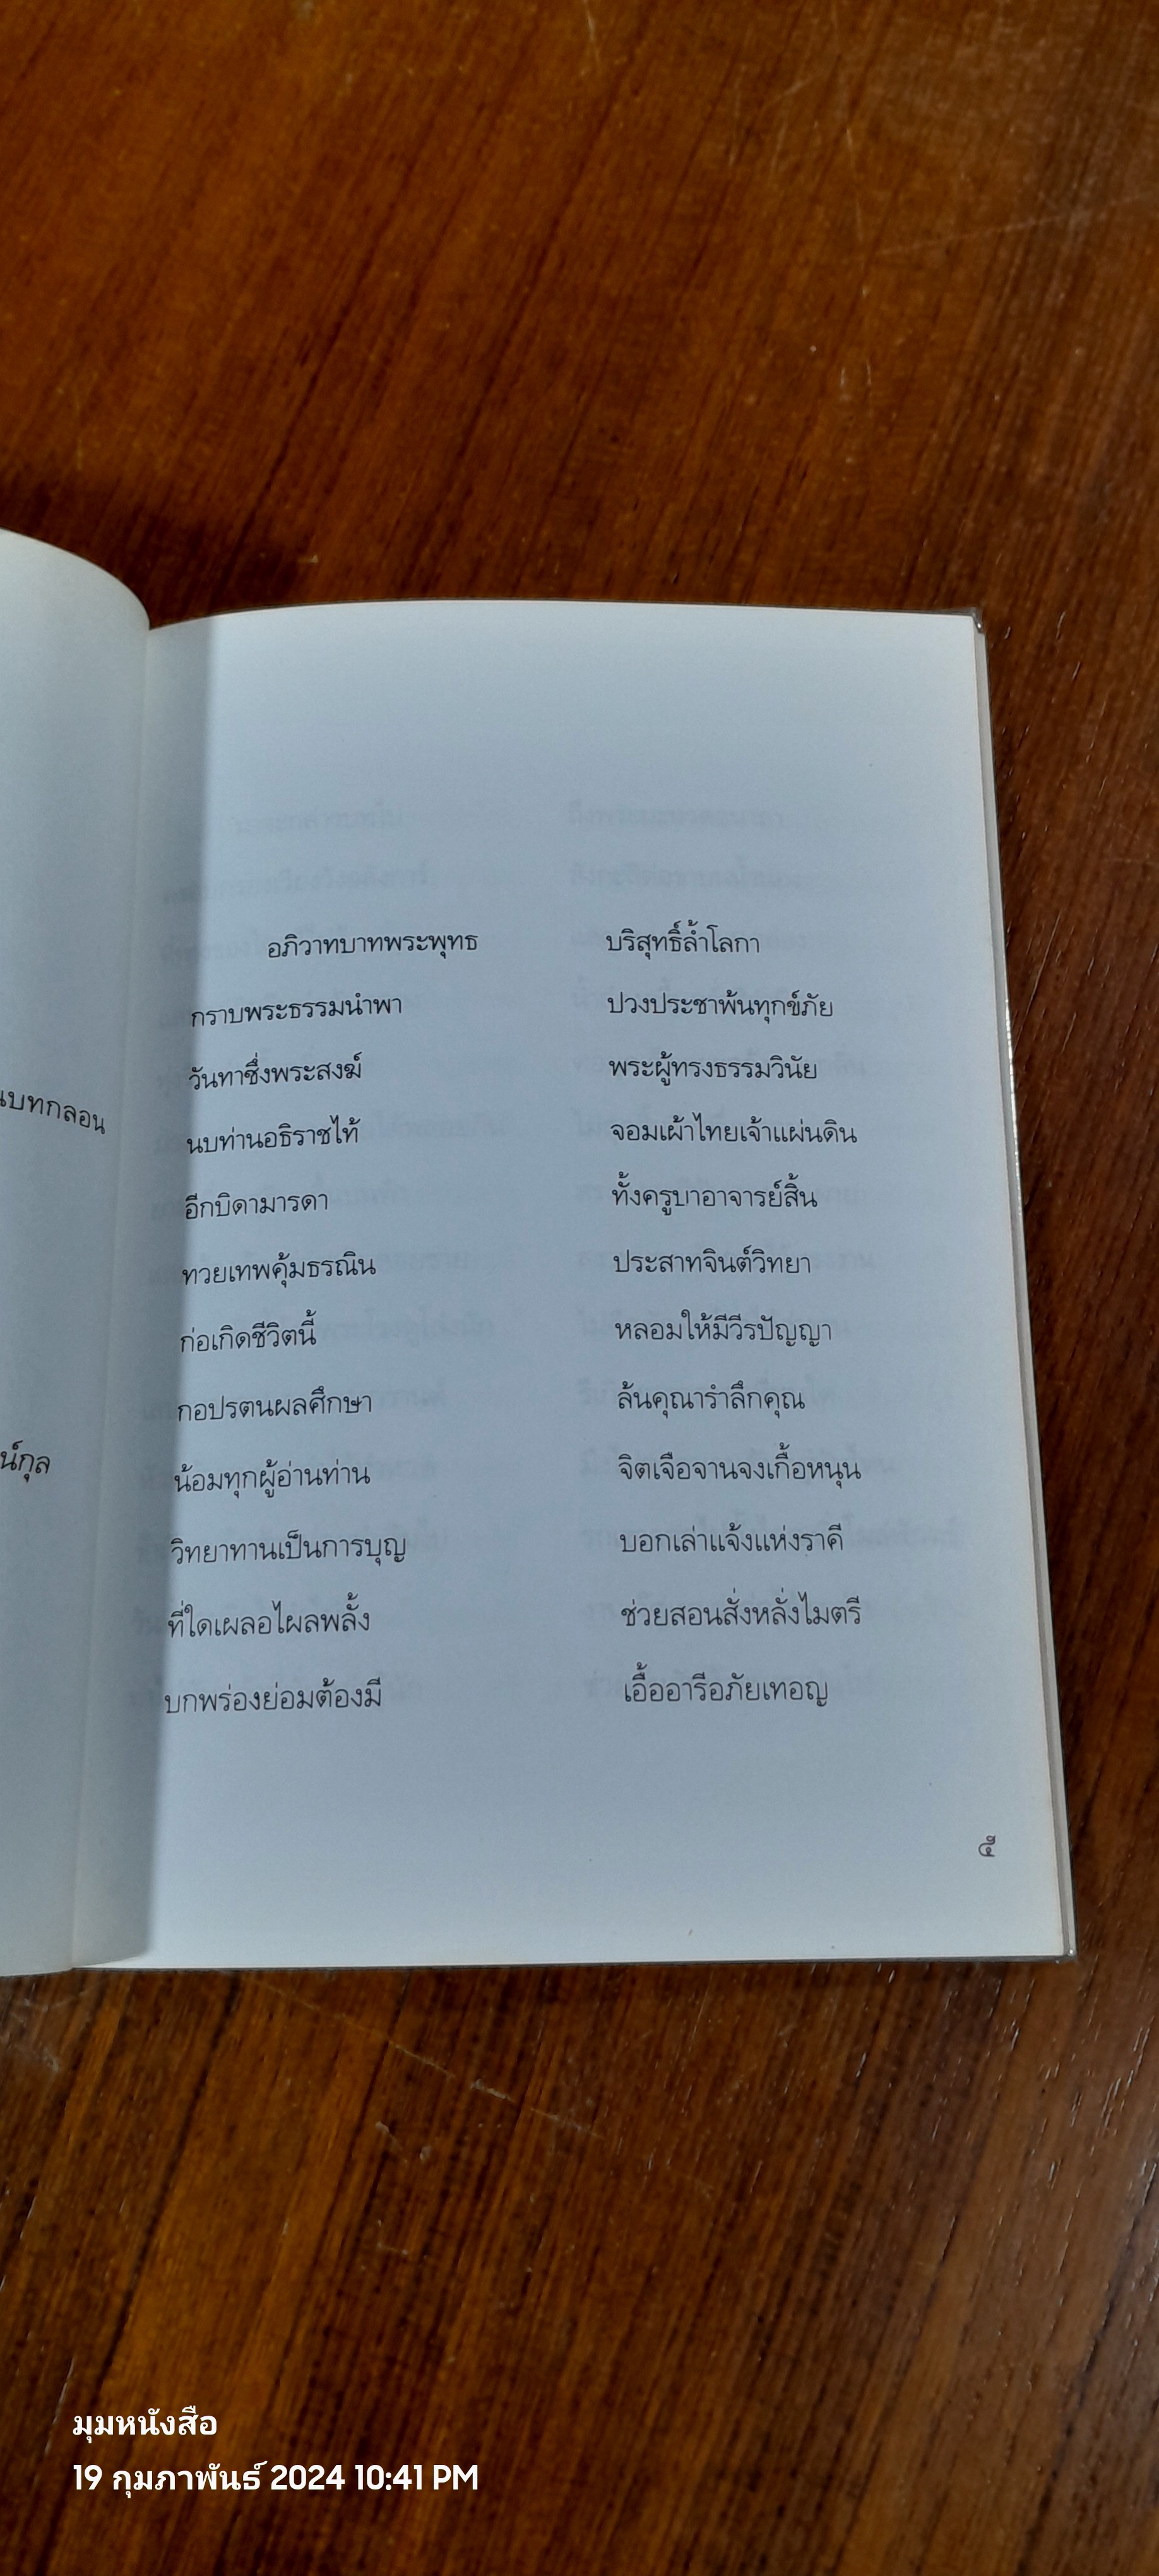 นบทกลอน
น์กุล
อภิวาทบาทพระพุทธ บริสุทธิ์ล้ำโลกา
กราบพระธรรมนำพา ปวงประชาพ้นทุกข์ภัย
วันทาซึ่งพระสงฆ์ พระผู้ทรงธรรมวินัย
นบท่านอธิราชไท้ จอมเผ้าไทยเจ้าแผ่นดิน
อีกบิดามารดา ทั้งครูบาอาจารย์สิ้น
ทวยเทพคุ้มธรณิน ประสาทจินต์วิทยา
ก่อเกิดชีวิตนี้ หลอมให้มีวีรปัญญา
กอปรตนผลศึกษา ล้นคุณารำลึกคุณ
น้อมทุกผู้อ่านท่าน จิตเจือจานจงเกื้อหนุน
วิทยาทานเป็นการบุญ บอกเล่าแจ้งแห่งราคี
ที่ใดเผลอไผลพลั้ง ช่วยสอนสั่งหลั่งไมตรี
บกพร่องย่อมต้องมี เอื้ออารีอภัยเทอญ
๕
มุมหนังสือ
19 กุมภาพันธ์ 2024 10:41 PM